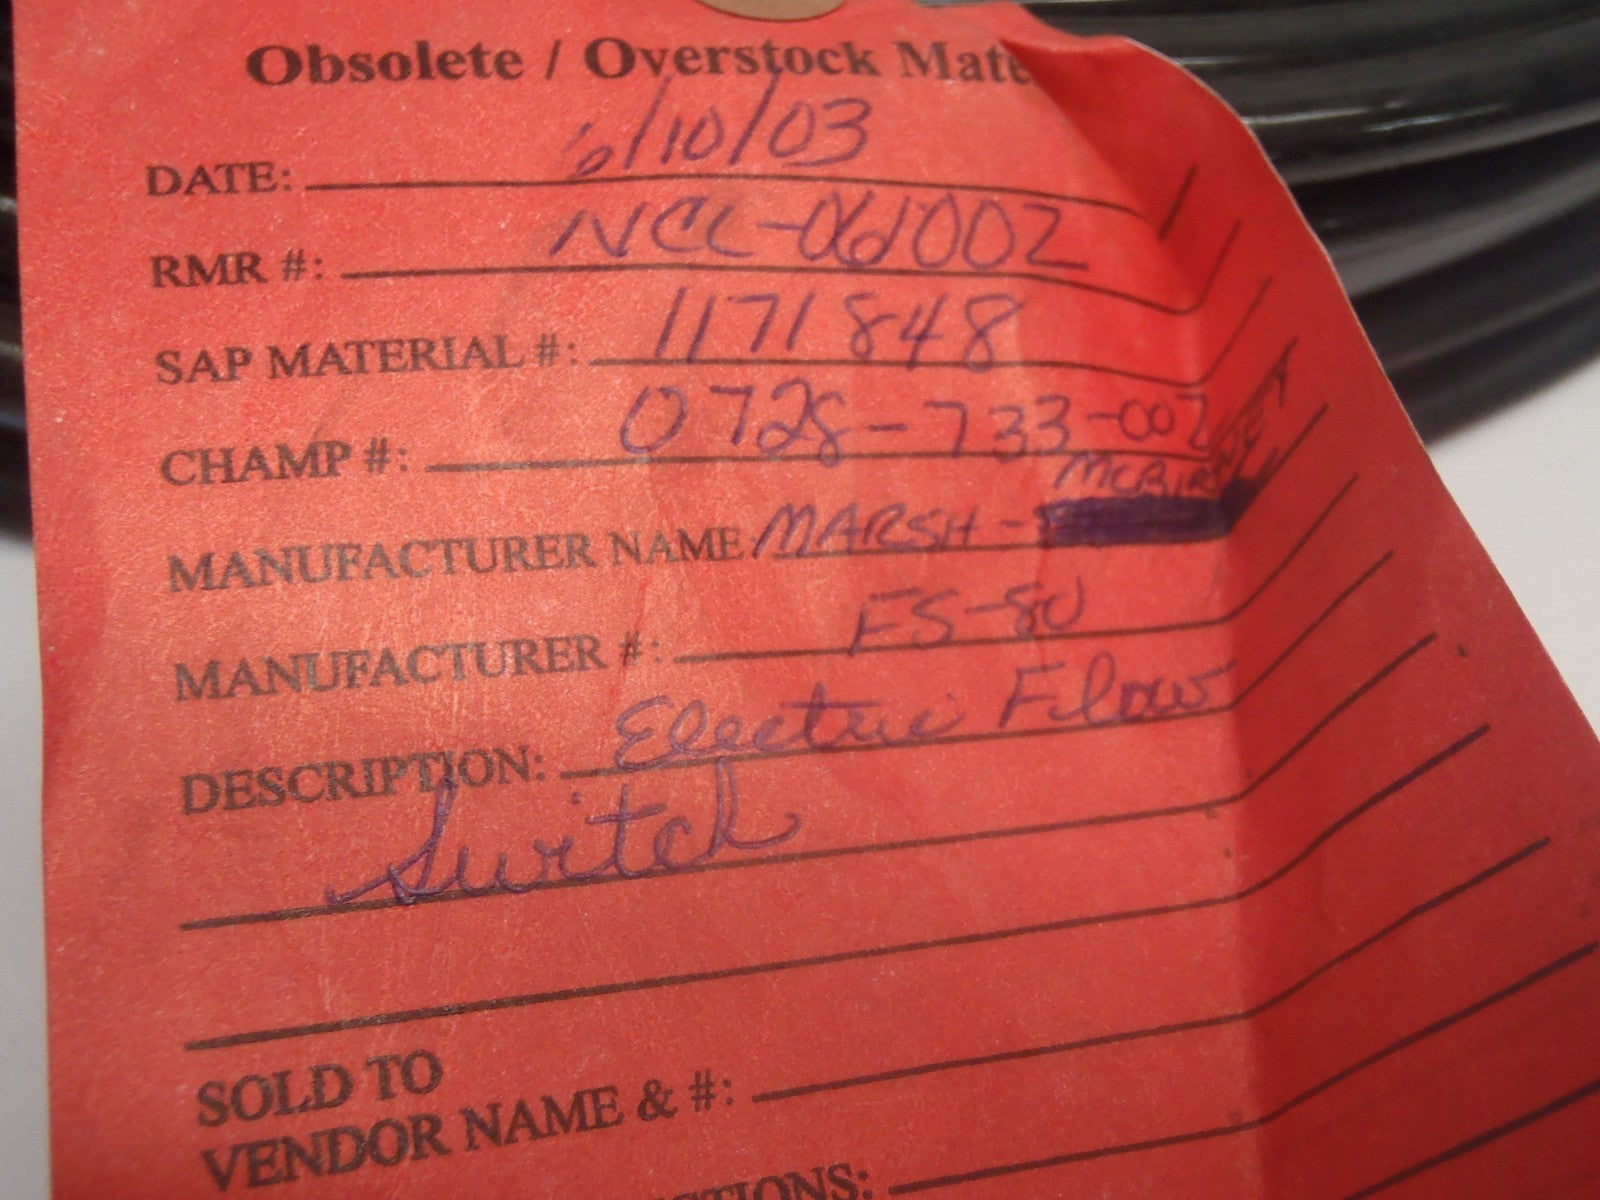 Obsolete / Overstock Mate
DATE: 6/10/03
RMR #: NCC-061002
SAP MATERIAL #: 1171848
CHAMP #: 0728-733-002
MCBIRNEY
MANUFACTURER NAME MARSH -
MANUFACTURER #: FS-80
DESCRIPTION: Electric Flow
Switch
SOLD TO
VENDOR NAME & #:
CTIONS: